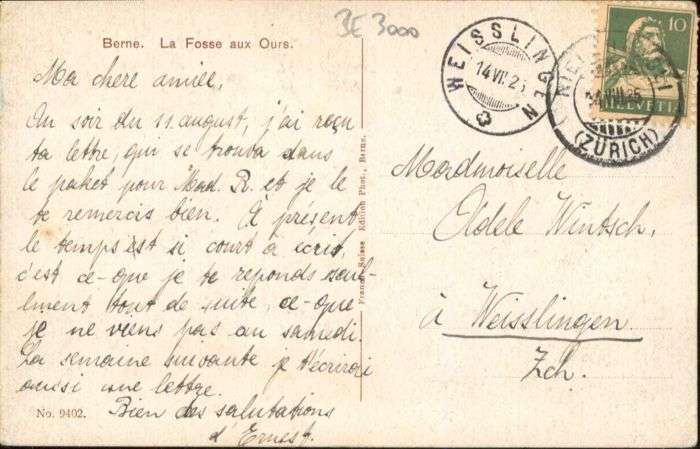 Berne. La Fosse aux Ours.
BE 3000
Ma chere amiee,
Au soir du 11. august, j'ai reçu
ta lettre, qui se trouva dans
le paket pour Mad. R. et je le
te remercis bien. A présent
le temps est si court à écrir,
c'est ce-que je te reponds seul-
lement tout de suite, ce-que
je ne viens pas au samedi.
La semaine suivante je t'écrirai
aussi une lettre.
Bien des salutations
d'Ernest.
No. 9402.
Franco-Suisse Edition Phot., Berne.
WEISSLINGEN
14 VIII 25
10
HELVETIA
(ZÜRICH)
Mademoiselle
Adele Wintsch,
à Weisslingen
Zch.